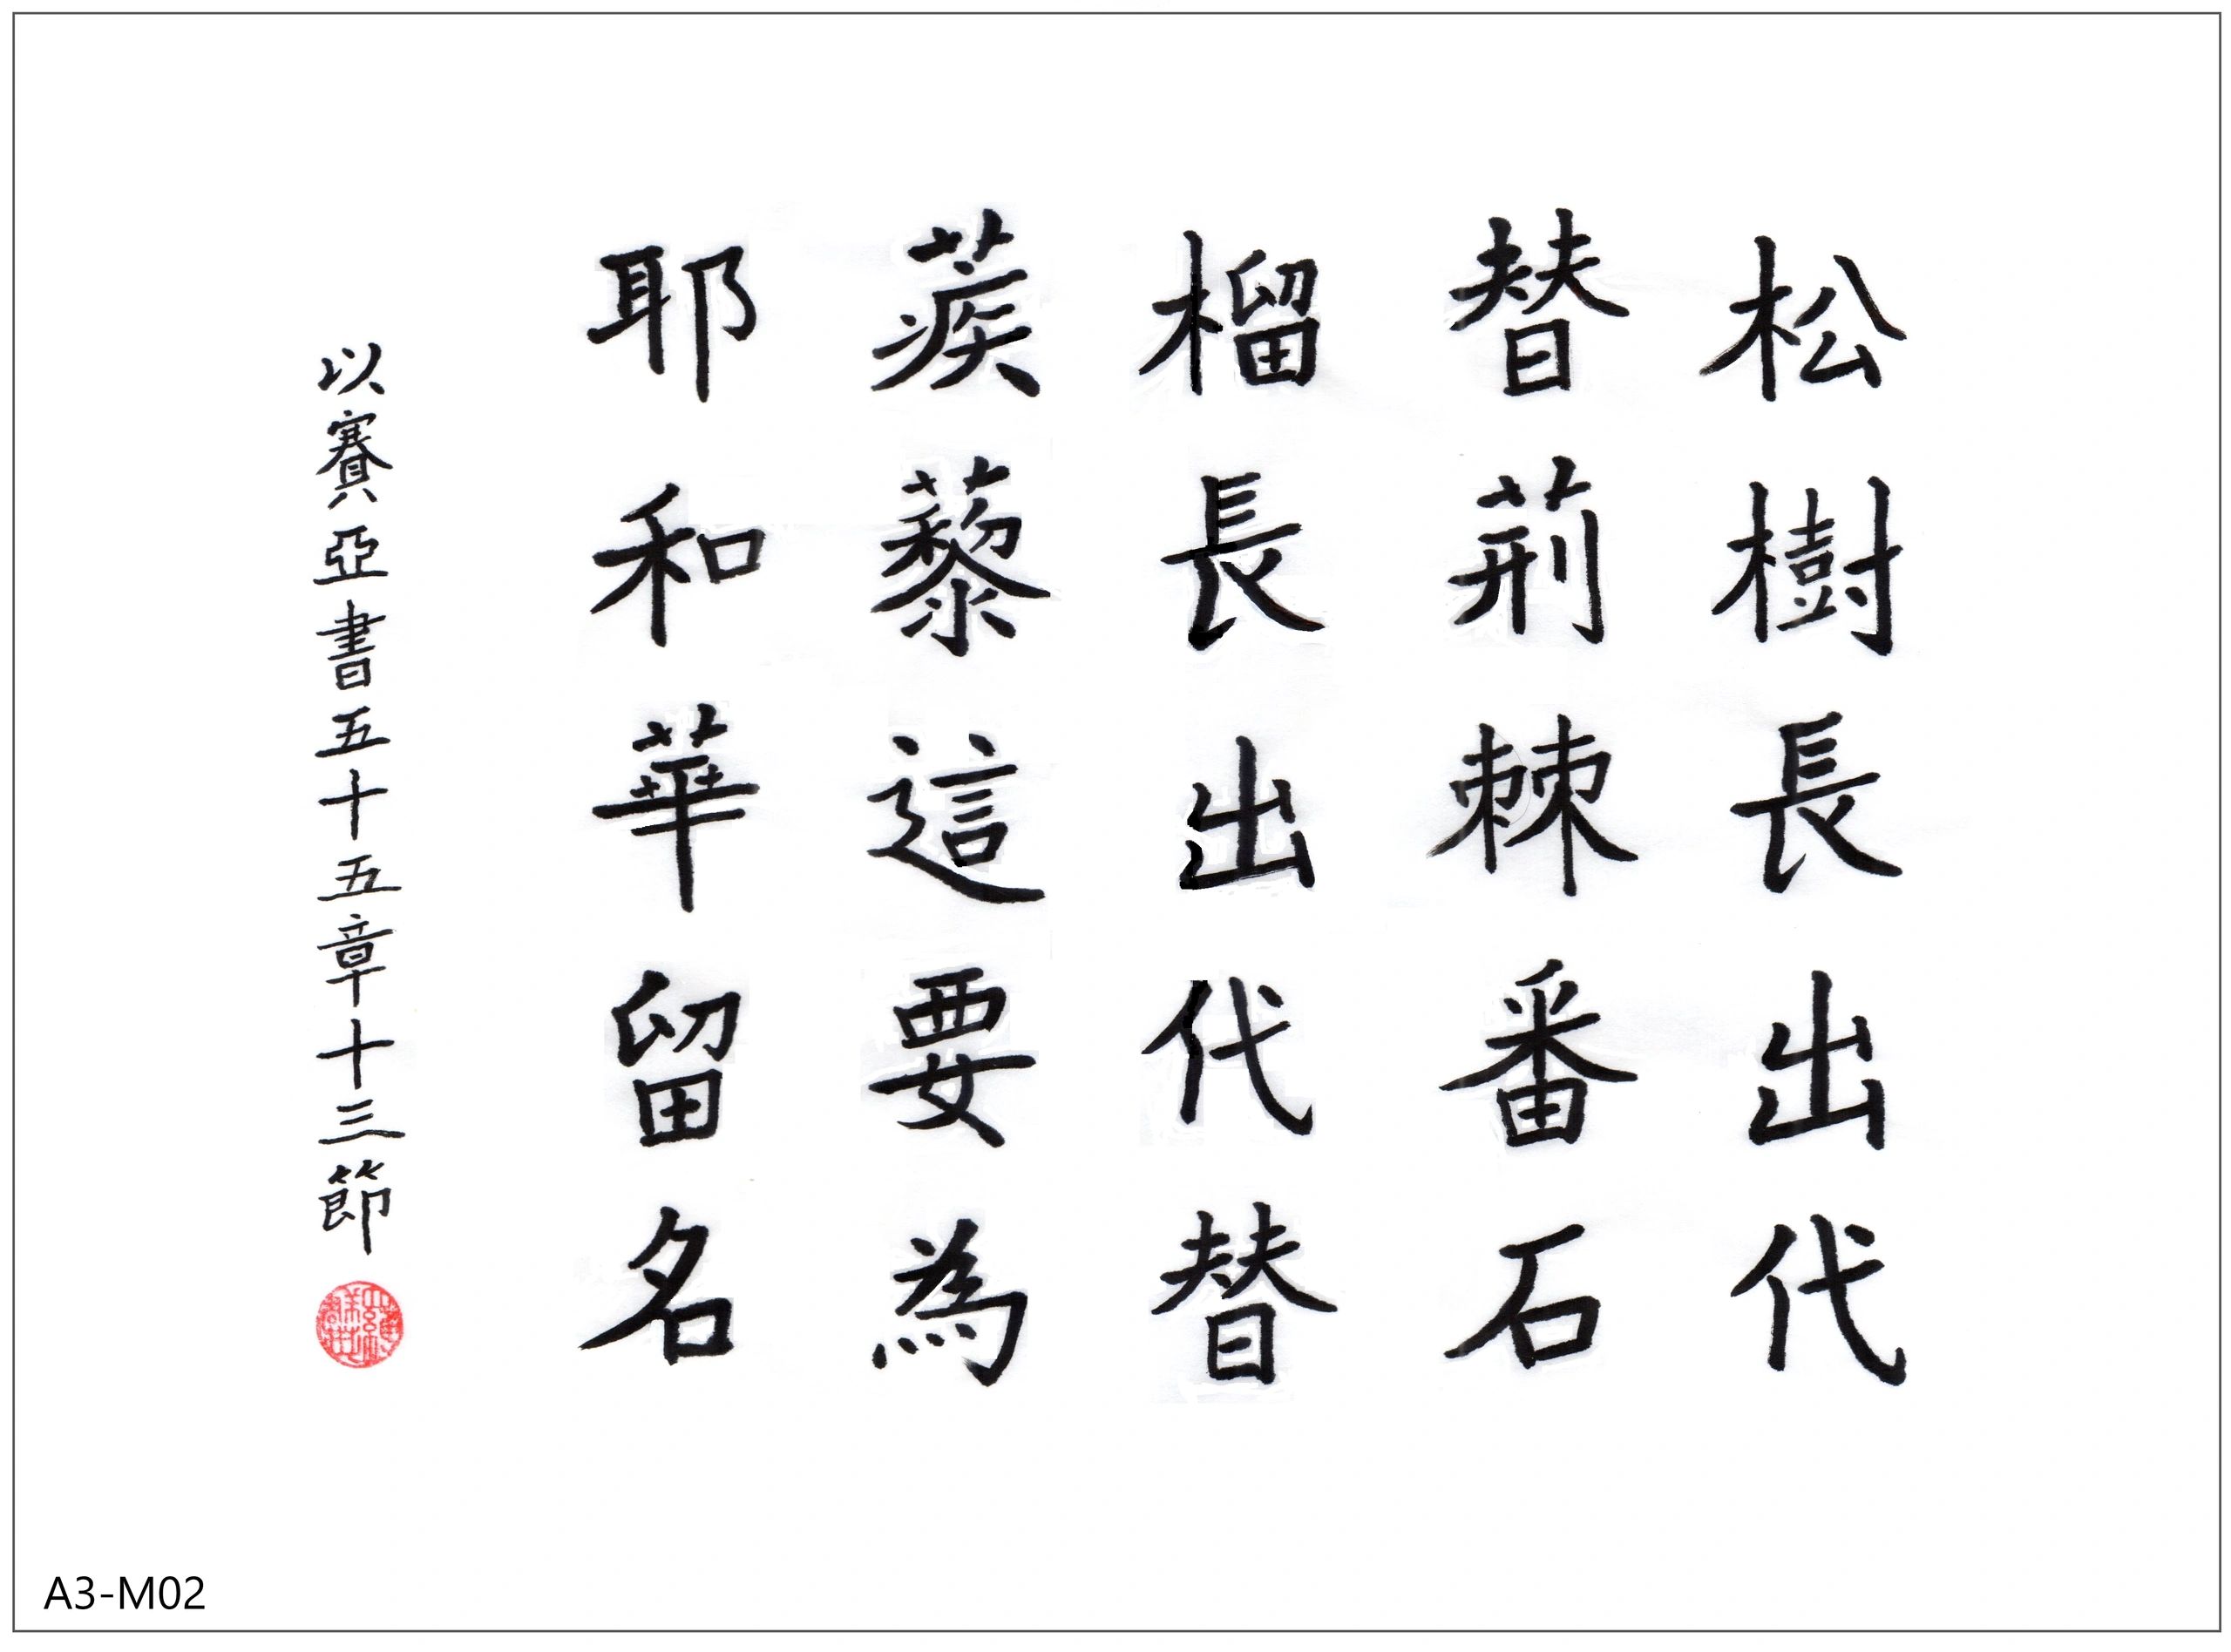 松樹長出代
替荊棘番石
榴長出代替
蒺藜這要為
耶和華留名
以賽亞書五十五章十三節
A3-M02